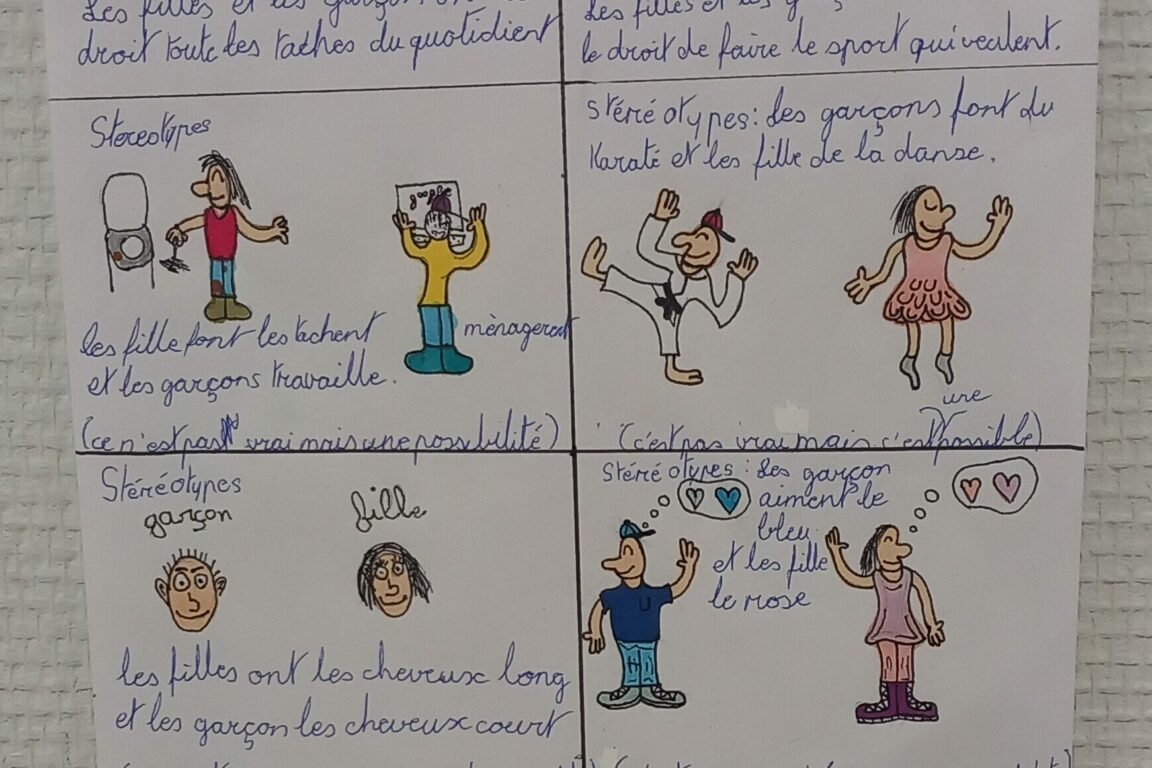 Les filles et les garçon on
droit toute les taches du quotidient
Les filles et les
le droit de faire le sport qui veulent.
Stereotypes
google
les fille font les tachent
ménagerent
et les garçons travaille.
(ce n'est pas vrai mais une possibilité)
Stéréotypes: Les garçons font du
Karaté et les fille de la danse.
(c'est pas vrai mais c'est une possible)
Stéréotypes
garçon
fille
les filles ont les cheveux long
et les garçon les cheveux court
Stéréotypes: Les garçon
aiment le
bleu
et les fille
le rose